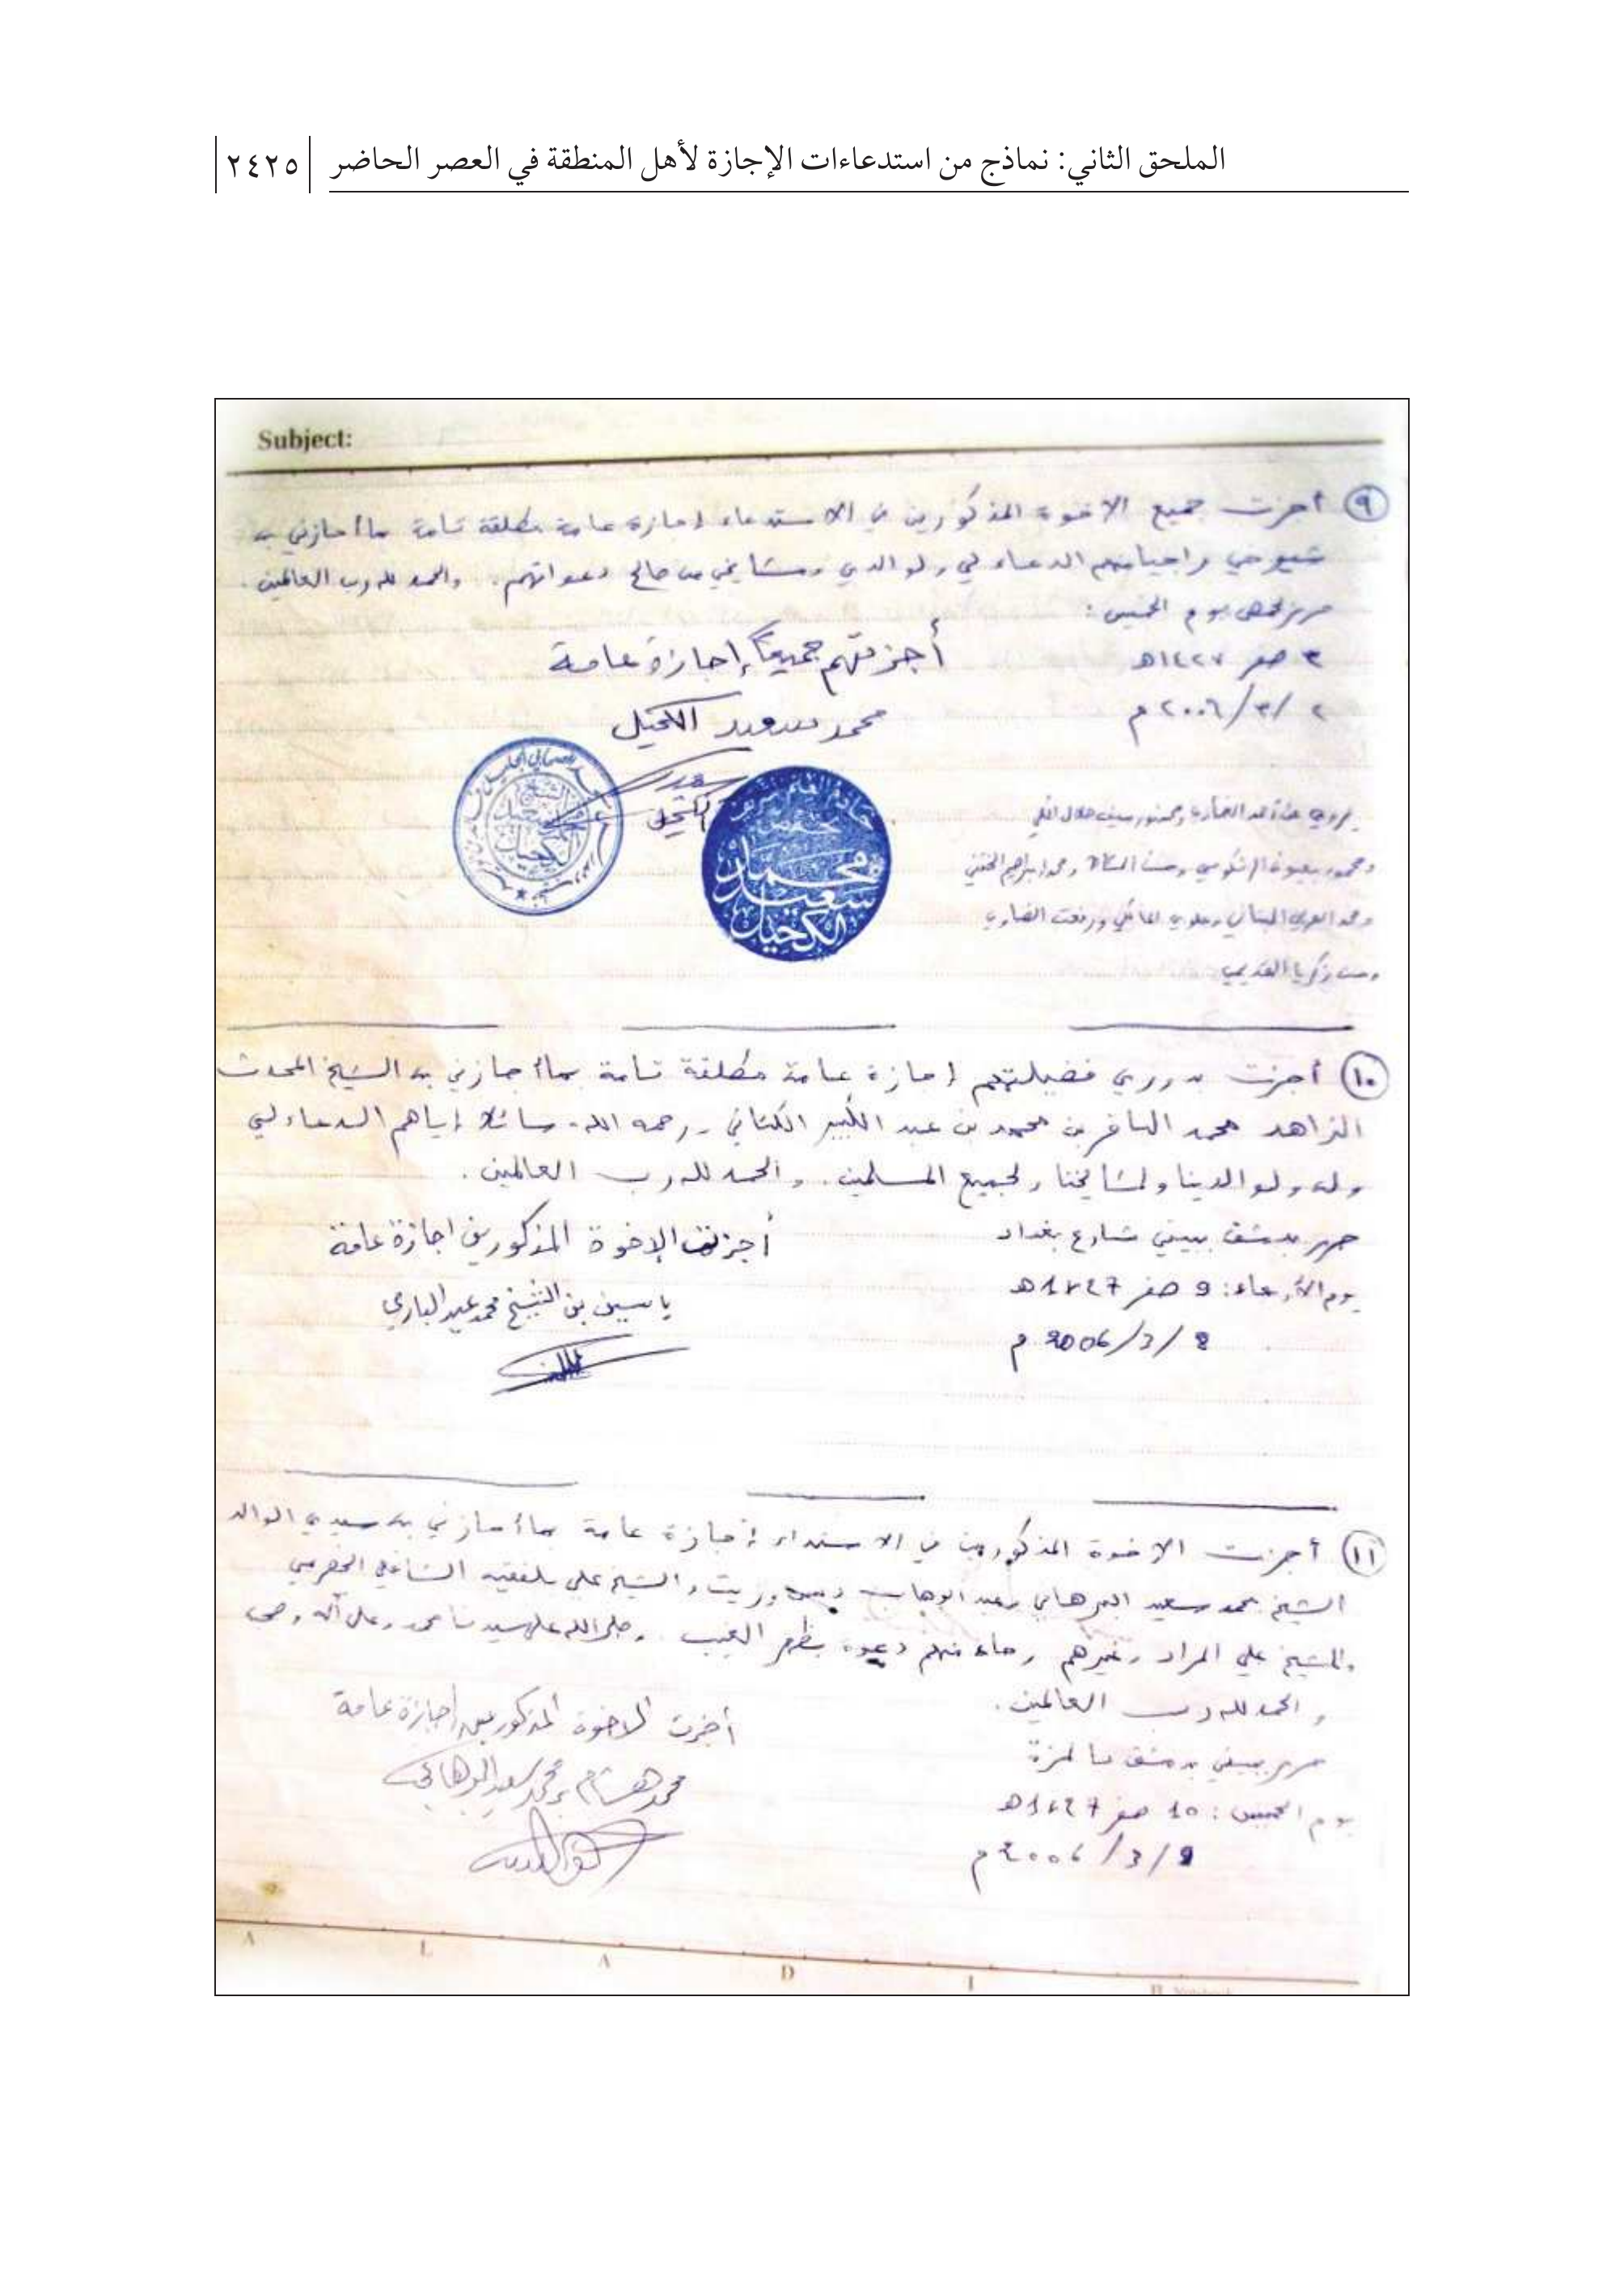 الملحق الثاني: نماذج من استدعاءات الإجازة لأهل المنطقة في العصر الحاضر ٢٤٢٥
Subject:
٩ أجزت جميع الاخوة المذكورين في الاستدعاء إجازة عامة مطلقة تامة بما أجازني به
شيوخي راجيا منهم الدعاء لي ولوالدي ومشايخي من صالح دعواتهم. والحمد لله رب العالمين.
يوم الخميس:
٣ صفر ١٤٢٧هـ
٢ /٣/ ٢٠٠٦ م
أجزتهم جميعاً إجازة عامة
محمد سعيد الكحيل
محمد سعيد الكحيل
يروي عن أحمد
ومحمد إبراهيم الختني
١٠ أجزت بدوري فضيلتهم إجازة عامة مطلقة تامة بما أجازني به الشيخ المحدث
الزاهد محمد الباقر بن محمد بن عبد الكبير الكتاني - رحمه الله - سائلا إياهم الدعاء لي
وله ولوالدينا ولمشايخنا ولجميع المسلمين. والحمد لله رب العالمين.
حرر بدمشق ببيتي شارع بغداد
يوم الأربعاء: 9 صفر 1427 هـ
8 /3/ 2006 م
أجزت الإخوة المذكورين اجازة عامة
ياسين بن الشيخ محمد عبد الباري
١١ أجزت الاخوة المذكورين في الاستدعاء إجازة عامة بما أجازني به سيدي الوالد
الشيخ محمد سعيد البرهاني وعبد الوهاب دبس وزيت والشيخ علي بلفقيه الشافعي الحضرمي
والشيخ علي المراد وغيرهم رجاء منهم دعوة بظهر الغيب. وصلى الله على سيدنا محمد وعلى آله وصحبه
والحمد لله رب العالمين.
حرر ببيتي بدمشق بالمزة
يوم الخميس: 10 صفر 1427هـ
9 /3/ 2006م
أجزت الاخوة المذكورين إجازة عامة
محمد هشام بن محمد سعيد البرهاني
A L A D I